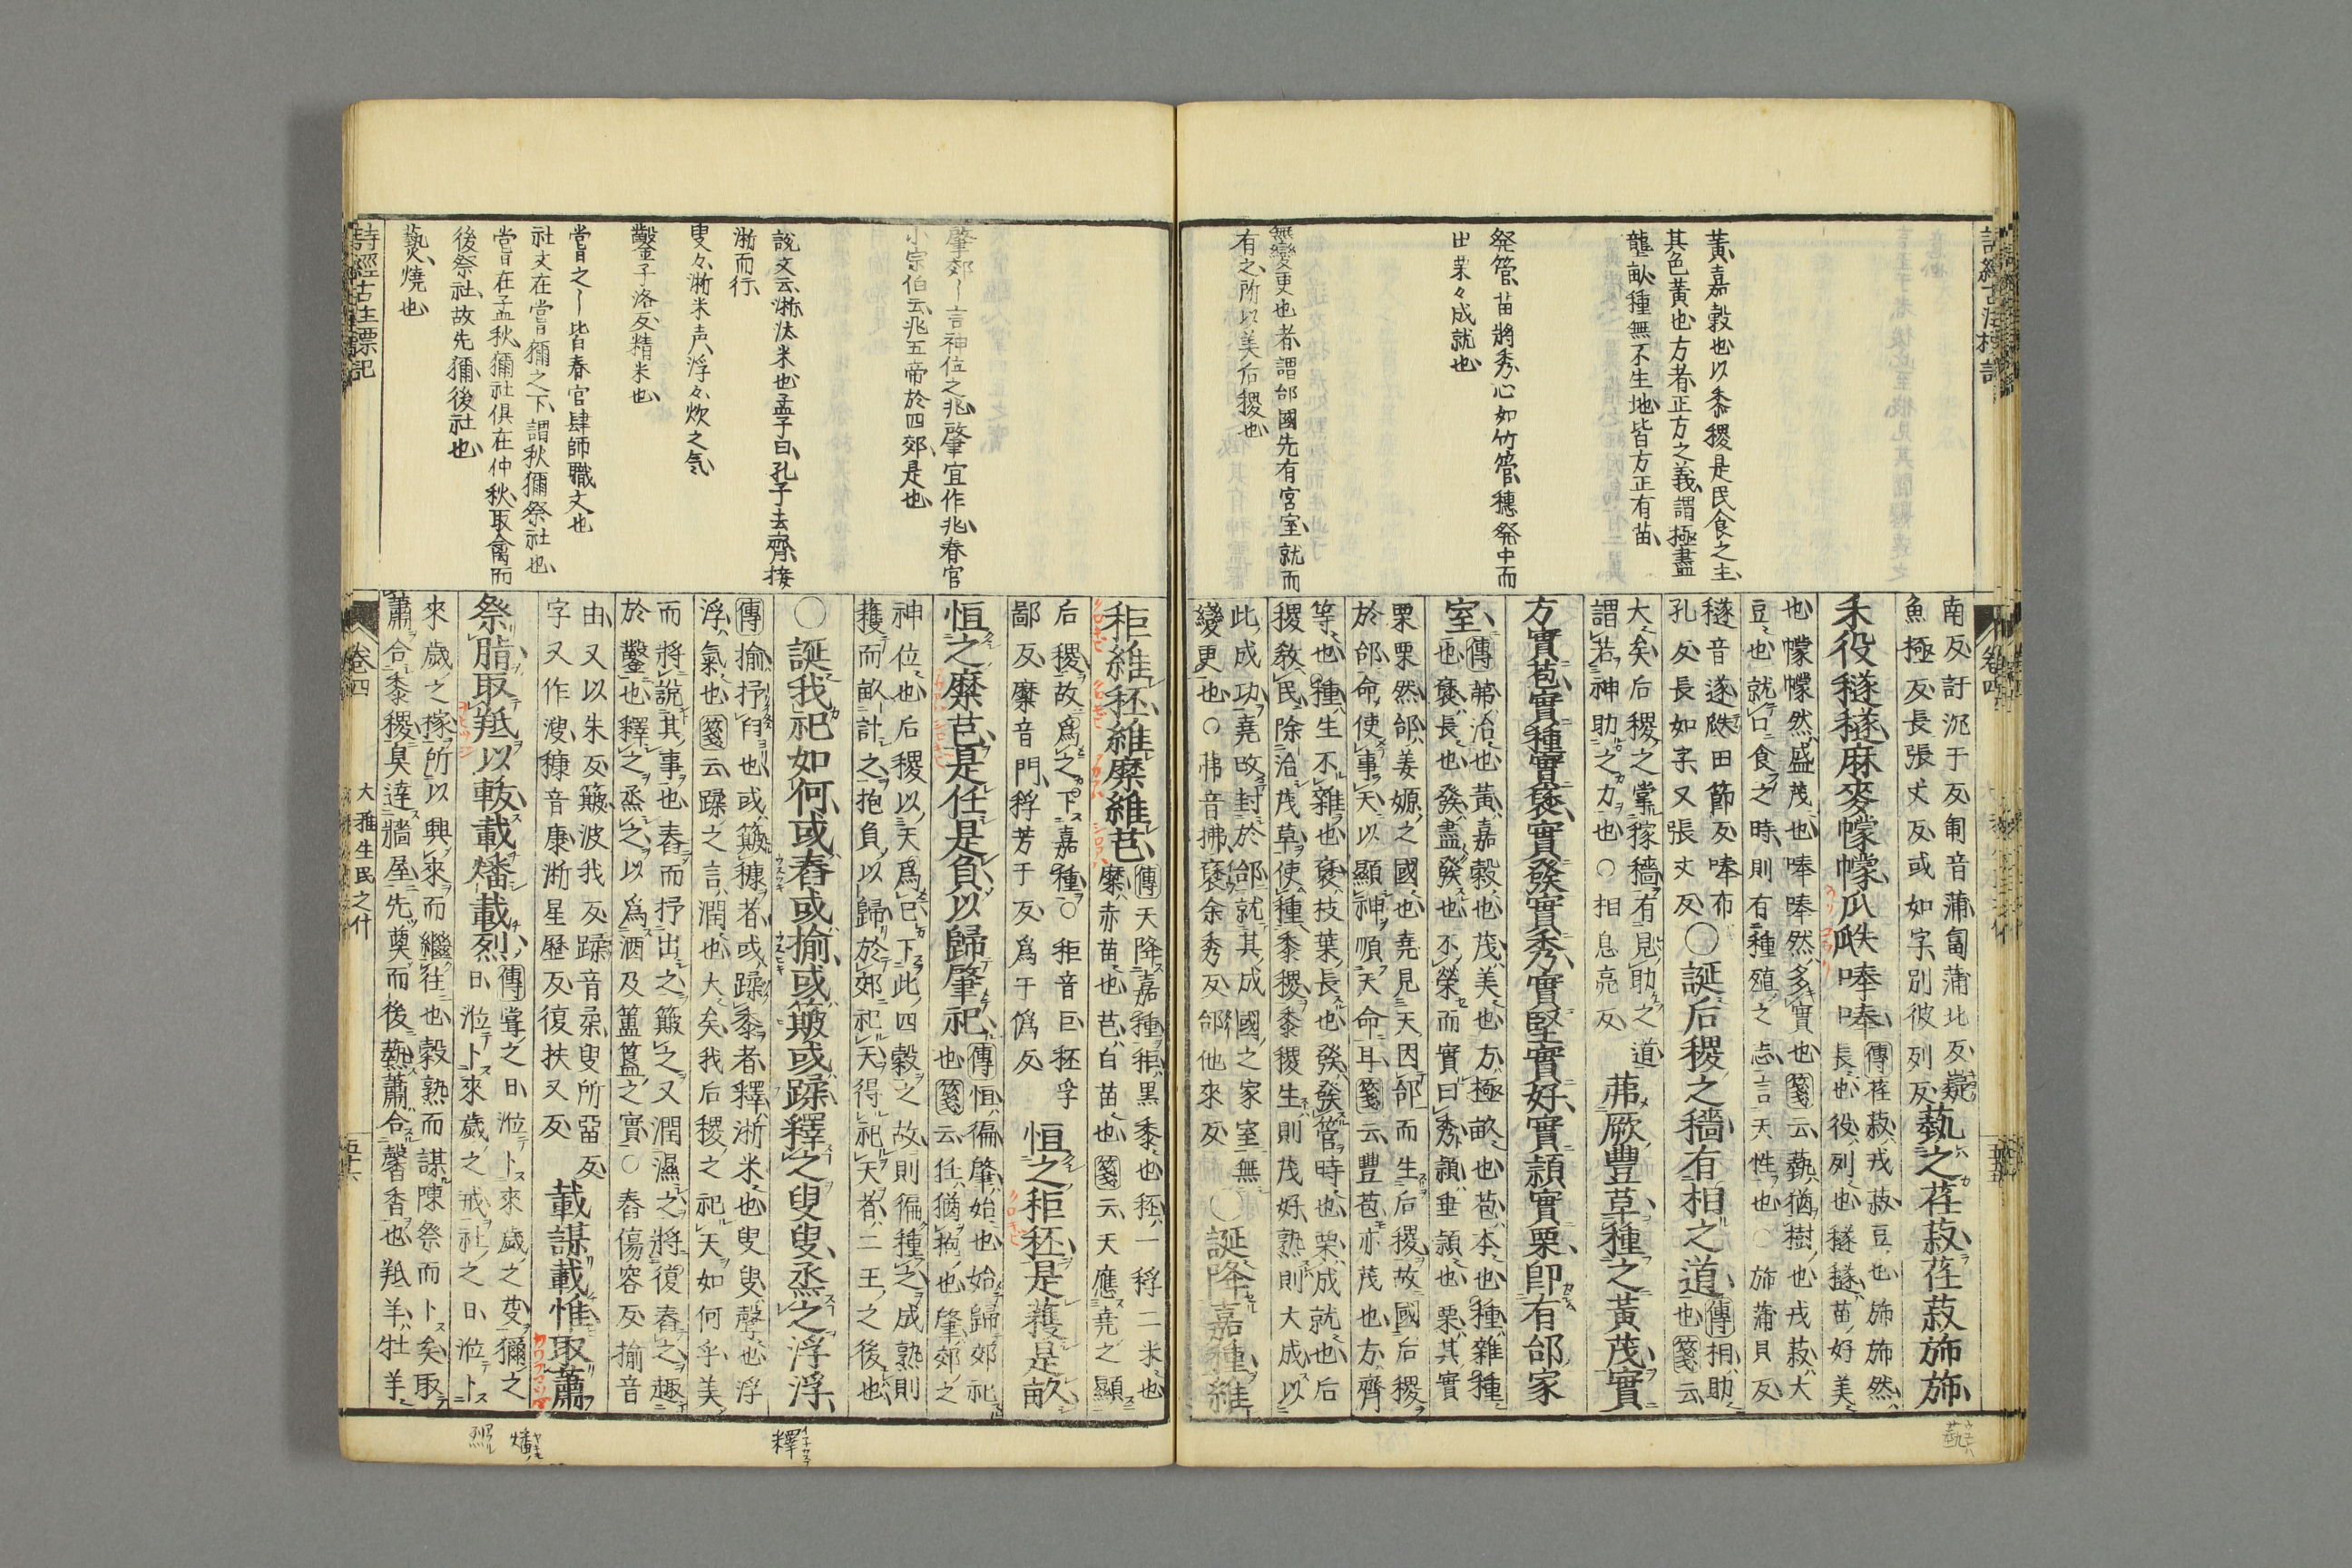 黃、嘉穀也、以黍稷是民食之主、
其色黃也、方者、正方之義、謂極盡
壟畝、種無不生地、皆方正有苗、
発管、苗將秀、心如竹管、穗発中而
出、栗々成就也、
無變更也者、謂邰國先有宮室、就而
有之、所以美后稷也、
南反訏況于反匍音蒲匐蒲北反嶷
魚極反長張丈反或如字別彼列反
蓺之荏菽荏菽旆旆
禾役穟穟麻麥幪幪瓜瓞唪唪
傳荏菽戎菽豆也旆旆然
長也役列也穟穟苗好美
也幪幪然盛茂也唪唪然多實也箋云蓺猶樹也戎菽大
豆也就口食之時則有種殖之志言天性也○旆蒲貝反
穟音遂瓞田節反唪布
孔反長如字又張丈反
○誕后稷之穡有相之道
傳相助
也箋云
大矣后稷之掌稼穡有見助之道
謂若神助之力也○相息亮反
茀厥豐草種之黃茂實
方實苞實種實褎實發實秀實堅實好實穎實栗卽有邰家
室
傳茀治也黃嘉穀也茂美也方極畝也苞本也種雜種
也褎長也發盡發也不榮而實曰秀穎垂穎也栗其實
栗栗然邰姜嫄之國也堯見天因邰而生后稷故國后稷
於邰命使事天以顯神順天命耳箋云豐苞亦茂也方齊
等也種生不雜也褎枝葉長也發發管時也栗成就也后
稷教民除治茂草使種黍稷黍稷生則茂好熟則大成以
此成功堯改封於邰就其成國之家室無
變更也○茀音拂褎余秀反邰他來反
○誕降嘉種維
卷四
蓺
肇郊ー言神位之兆、肇宜作兆、春官
小宗伯云、兆五帝於四郊、是也、
說文云、淅汰米也、孟子曰、孔子去齊、接
淅而行、
叟々、淅米声、浮々、炊之気、
鑿子洛反、精米也、
嘗之ー皆春官肆師職文也
社文在嘗獮之下、謂秋獮祭社也、
嘗在孟秋、獮社俱在仲秋、取禽而
後祭社、故先獮後社也、
爇、燒也、
秬維秠維穈維芑
傳天降嘉種秬黑黍也秠一稃二米也
穈赤苗也芑白苗也箋云天應堯之顯
后稷故爲之下嘉種○秬音巨秠孚
鄙反穈音門稃芳于反爲于僞反
恒之秬秠是穫是畝
恒之穈芑是任是負以歸肇祀
傳恒徧肇始也始歸郊祀
也箋云任猶抱也肇郊之
神位也后稷以天爲己下此四穀之故則徧種之成熟則
穫而畝計之抱負以歸於郊祀天得祀天者二王之後也
○誕我祀如何或舂或揄或簸或蹂釋之叟叟烝之浮浮
傳揄抒臼也或簸穅者或蹂黍者釋淅米也叟叟聲也浮
浮氣也箋云蹂之言潤也大矣我后稷之祀天如何乎美
而將說其事也舂而抒出之簸之又潤濕之將復舂之趣
於鑿也釋之烝之以爲酒及簠簋之實○舂傷容反揄音
由又以朱反簸波我反蹂音柔叟所留反
字又作溲穅音康淅星歷反復扶又反
載謀載惟取蕭
祭脂取羝以軷載燔載烈
傳嘗之日涖卜來歲之芟獮之
日涖卜來歲之戒社之日涖卜
來歲之稼所以興來而繼往也穀熟而謀陳祭而卜矣取
蕭合黍稷臭達牆屋先奠而後爇蕭合馨香也羝羊牡羊
詩經古注標記
卷四
大雅生民之什
五十六
釋
燔
烈